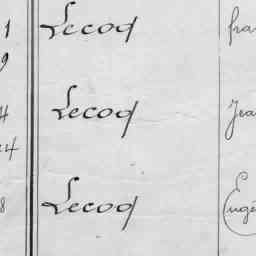 1 Lecoq fra
9
4 Lecoq Jea
24
8 Lecoq Eugé